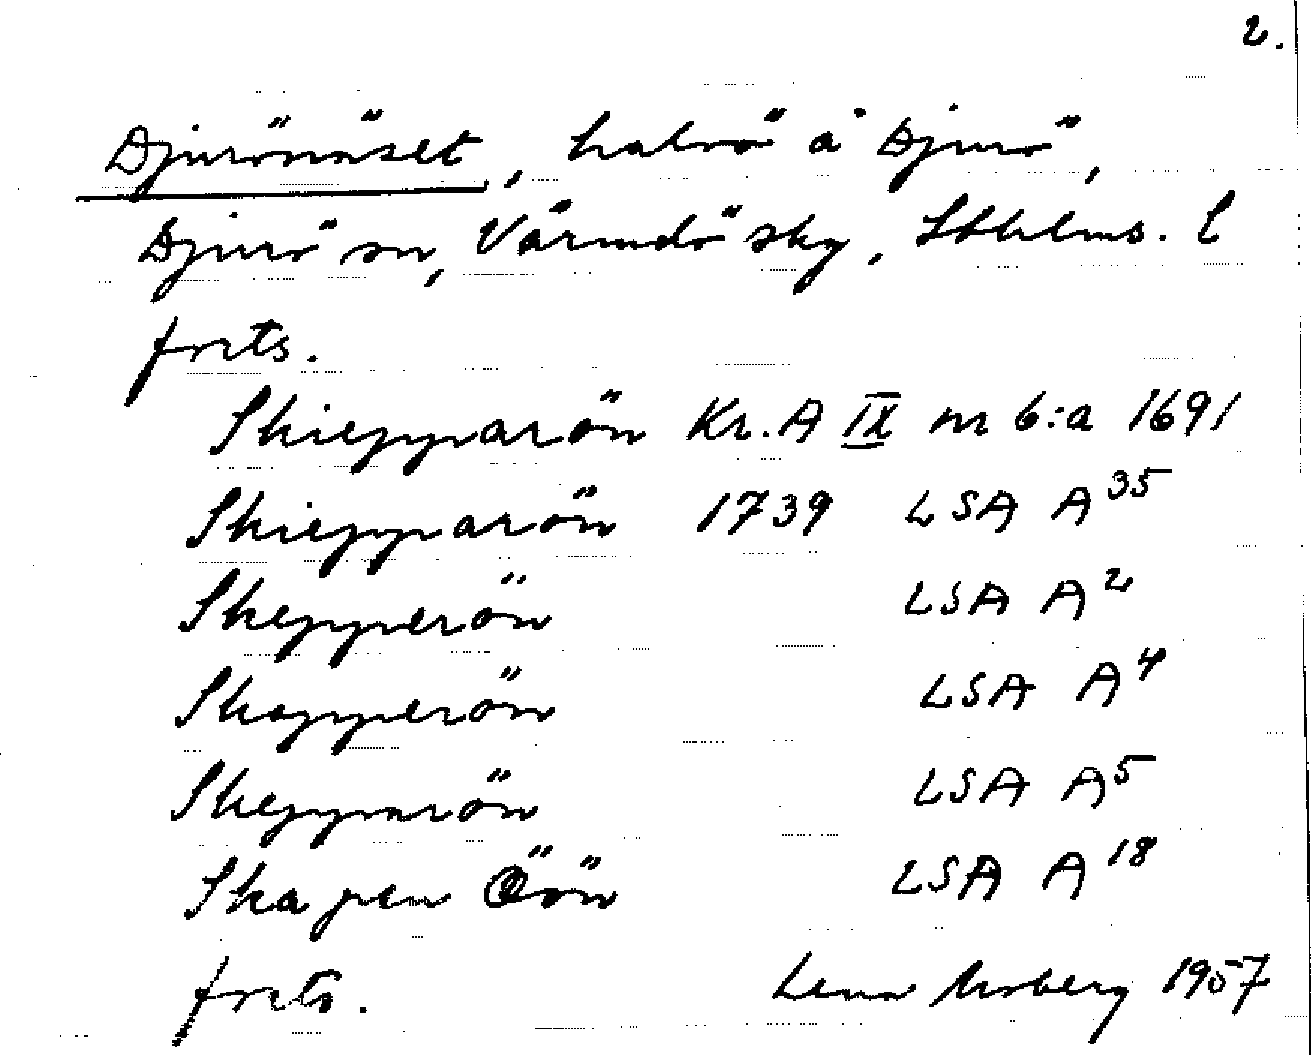 2.
Djurönäset, halvö å Djurö,
Djurö sn, Värmdö sky, Sthlms. l
forts.
Skiepparön Kr. A IX nr 6:a 1691
Skiepparön 1739 LSA A 35
Skepperön LSA A 2
Skepperön LSA A 4
Skepparön LSA A 5
Ska pen Öön LSA A 18
forts. Lena Moberg 1957